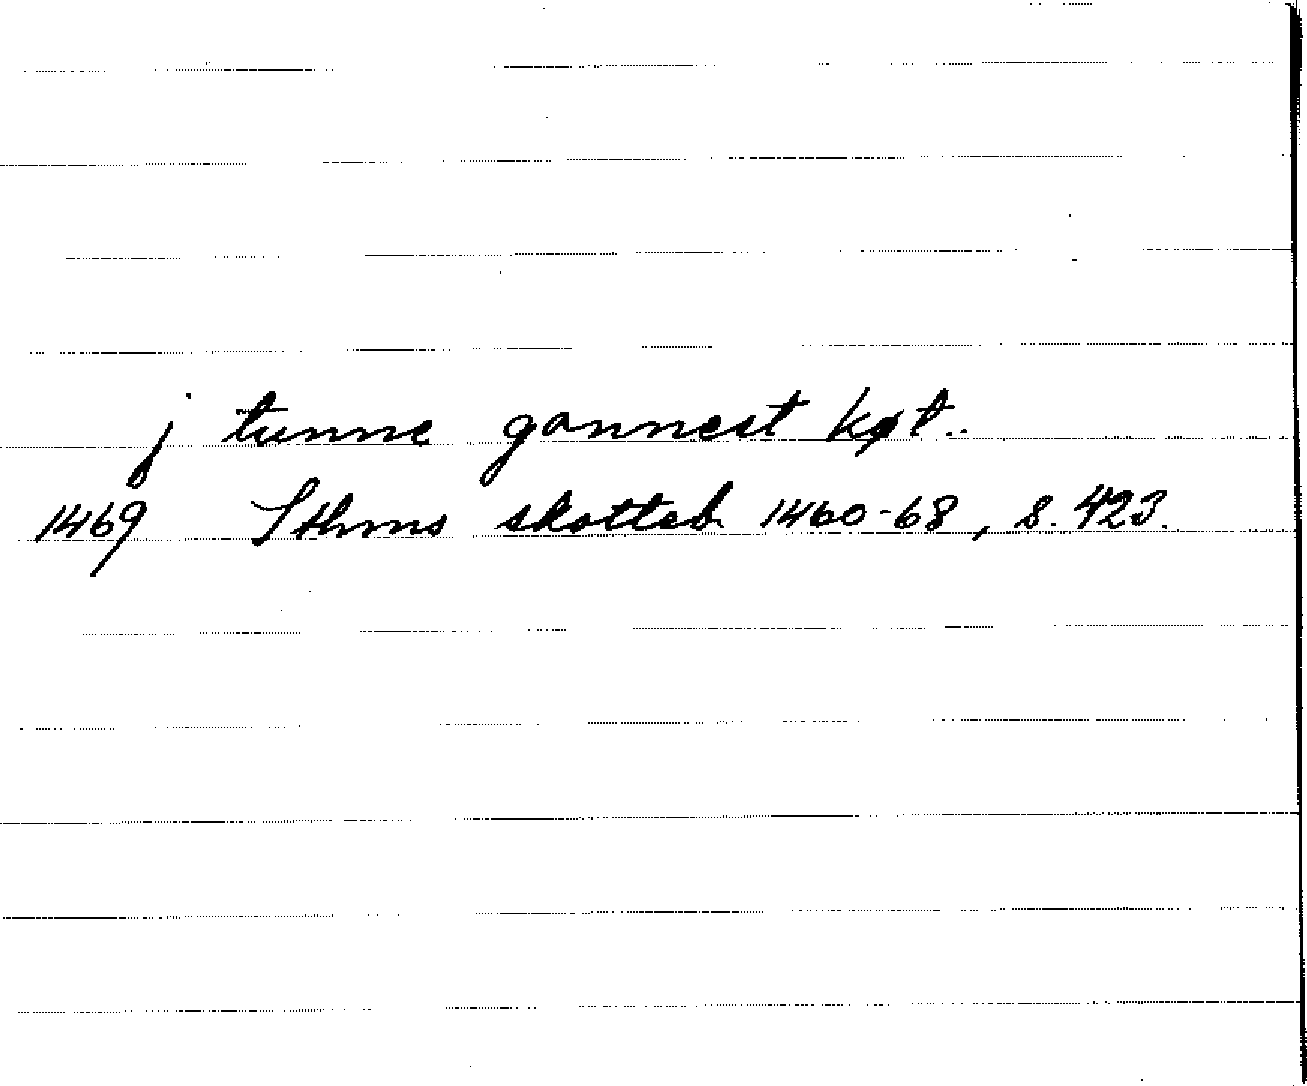 j tunne gannest køt..
1469 Sthms skotteb. 1460-68, s. 423.